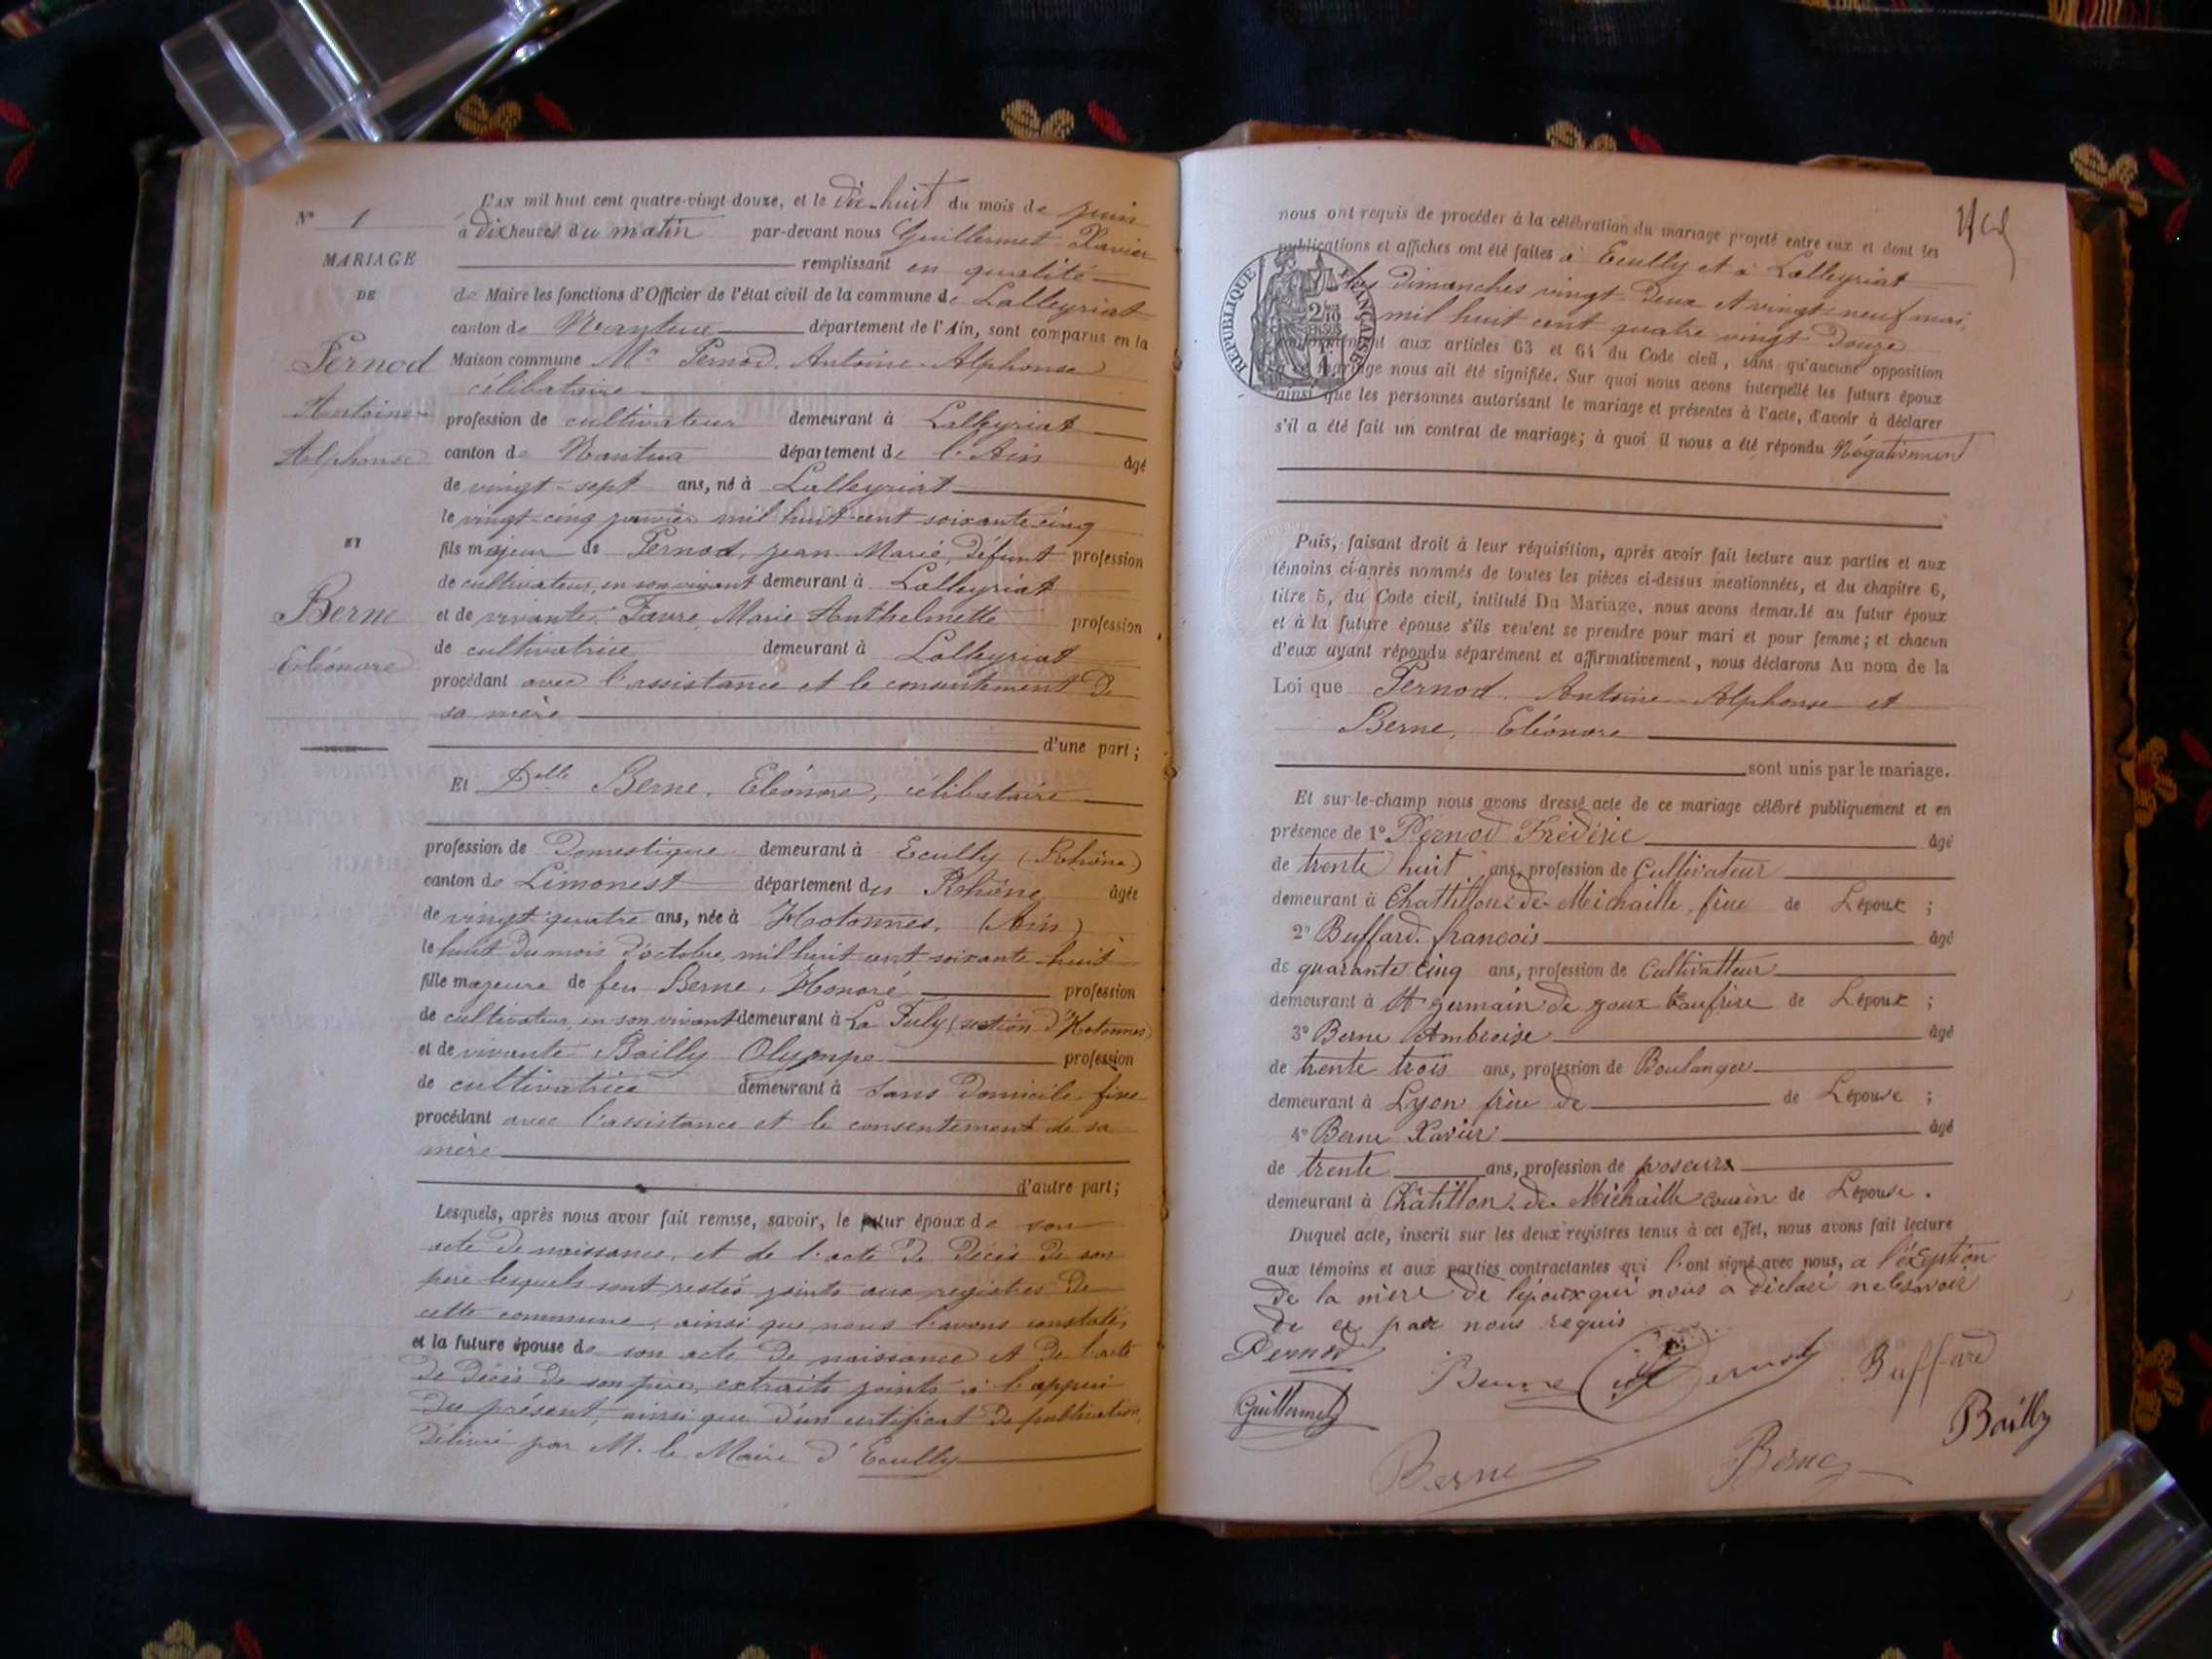 N° 1
MARIAGE
DE
Pernod
Antoine
Alphonse
ET
Berne
Eléonore
L'AN mil huit cent quatre-vingt-douze, et le dix-huit du mois de juin
à dix heures du matin par-devant nous Guillermet Xavier
remplissant en qualité
de Maire les fonctions d'Officier de l'état civil de la commune de Lalleyriat
canton de Nantua département de l'Ain, sont comparus en la
Maison commune Mr Pernod, Antoine Alphonse
célibataire
profession de cultivateur demeurant à Lalleyriat
canton de Nantua département de l'Ain âgé
de vingt-sept ans, né à Lalleyriat
le vingt-cinq janvier mil huit cent soixante cinq
fils majeur de Pernod, Jean Marie, défunt profession
de cultivateur, en son vivant demeurant à Lalleyriat
et de vivante Favre Marie Anthelmette profession
de cultivatrice demeurant à Lalleyriat
procédant avec l'assistance et le consentement de
sa mère
d'une part;
Et Delle Berne, Eléonore, célibataire
profession de Domestique demeurant à Ecully (Rhône)
canton de Limonest département du Rhône âgée
de vingt quatre ans, née à Hotonnes, (Ain)
le huit du mois d'octobre, mil huit cent soixante huit
fille majeure de feu Berne, Honoré profession
de cultivateur en son vivant demeurant à La Fuly (section d'Hotonnes)
et de vivante Bailly Olympe profession
de cultivatrice demeurant à sans domicile fixe
procédant avec l'assistance et le consentement de sa
mère
d'autre part;
Lesquels, après nous avoir fait remise, savoir, le futur époux de son
acte de naissance, et de l'acte de décès de son
père lesquels sont restés joints aux registres de
cette commune, ainsi que nous l'avons constaté,
et la future épouse de son acte de naissance et de l'acte
de décès de son père, extraits joints à l'appui
du présent, ainsi que d'un certificat de publication,
délivré par M. le Maire d'Ecully
nous ont requis de procéder à la célébration du mariage projeté entre eux et dont les
publications et affiches ont été faites à Ecully et à Lalleyriat
les dimanches vingt-deux et vingt-neuf mai,
mil huit cent quatre vingt douze
REPUBLIQUE FRANÇAISE
aux articles 63 et 64 du Code civil, sans qu'aucune opposition
mariage nous ait été signifiée. Sur quoi nous avons interpellé les futurs époux
ainsi que les personnes autorisant le mariage et présentes à l'acte, d'avoir à déclarer
s'il a été fait un contrat de mariage; à quoi il nous a été répondu Négativement
Puis, faisant droit à leur réquisition, après avoir fait lecture aux parties et aux
témoins ci-après nommés de toutes les pièces ci-dessus mentionnées, et du chapitre 6,
titre 5, du Code civil, intitulé Du Mariage, nous avons demandé au futur époux
et à la future épouse s'ils veulent se prendre pour mari et pour femme; et chacun
d'eux ayant répondu séparément et affirmativement, nous déclarons Au nom de la
Loi que Pernod, Antoine Alphonse et
Berne, Eléonore
sont unis par le mariage.
Et sur-le-champ nous avons dressé acte de ce mariage célébré publiquement et en
présence de 1° Pernod Frédéric âgé
de trente huit ans, profession de Cultivateur
demeurant à Chattillon de Michaille frère de Lépoux ;
2° Buffard françois âgé
de quarante cinq ans, profession de Cultivatteur
demeurant à St germain de joux beaufrère de Lépoux ;
3° Berne Ambroise âgé
de trente trois ans, profession de Boulanger
demeurant à Lyon frère de de Lépouse ;
4° Berne Xavier âgé
de trente ans, profession de poseurs
demeurant à Châtillon de Michaille cousin de Lépouse.
Duquel acte, inscrit sur les deux registres tenus à cet effet, nous avons fait lecture
aux témoins et aux parties contractantes qui l'ont signé avec nous, a l'éxeption
de la mère de l'époux qui nous a déclaré ne le savoir
de ce par nous requis
Pernod
Berne
Buffard
Guillermet
Bailly
Berne
Berne